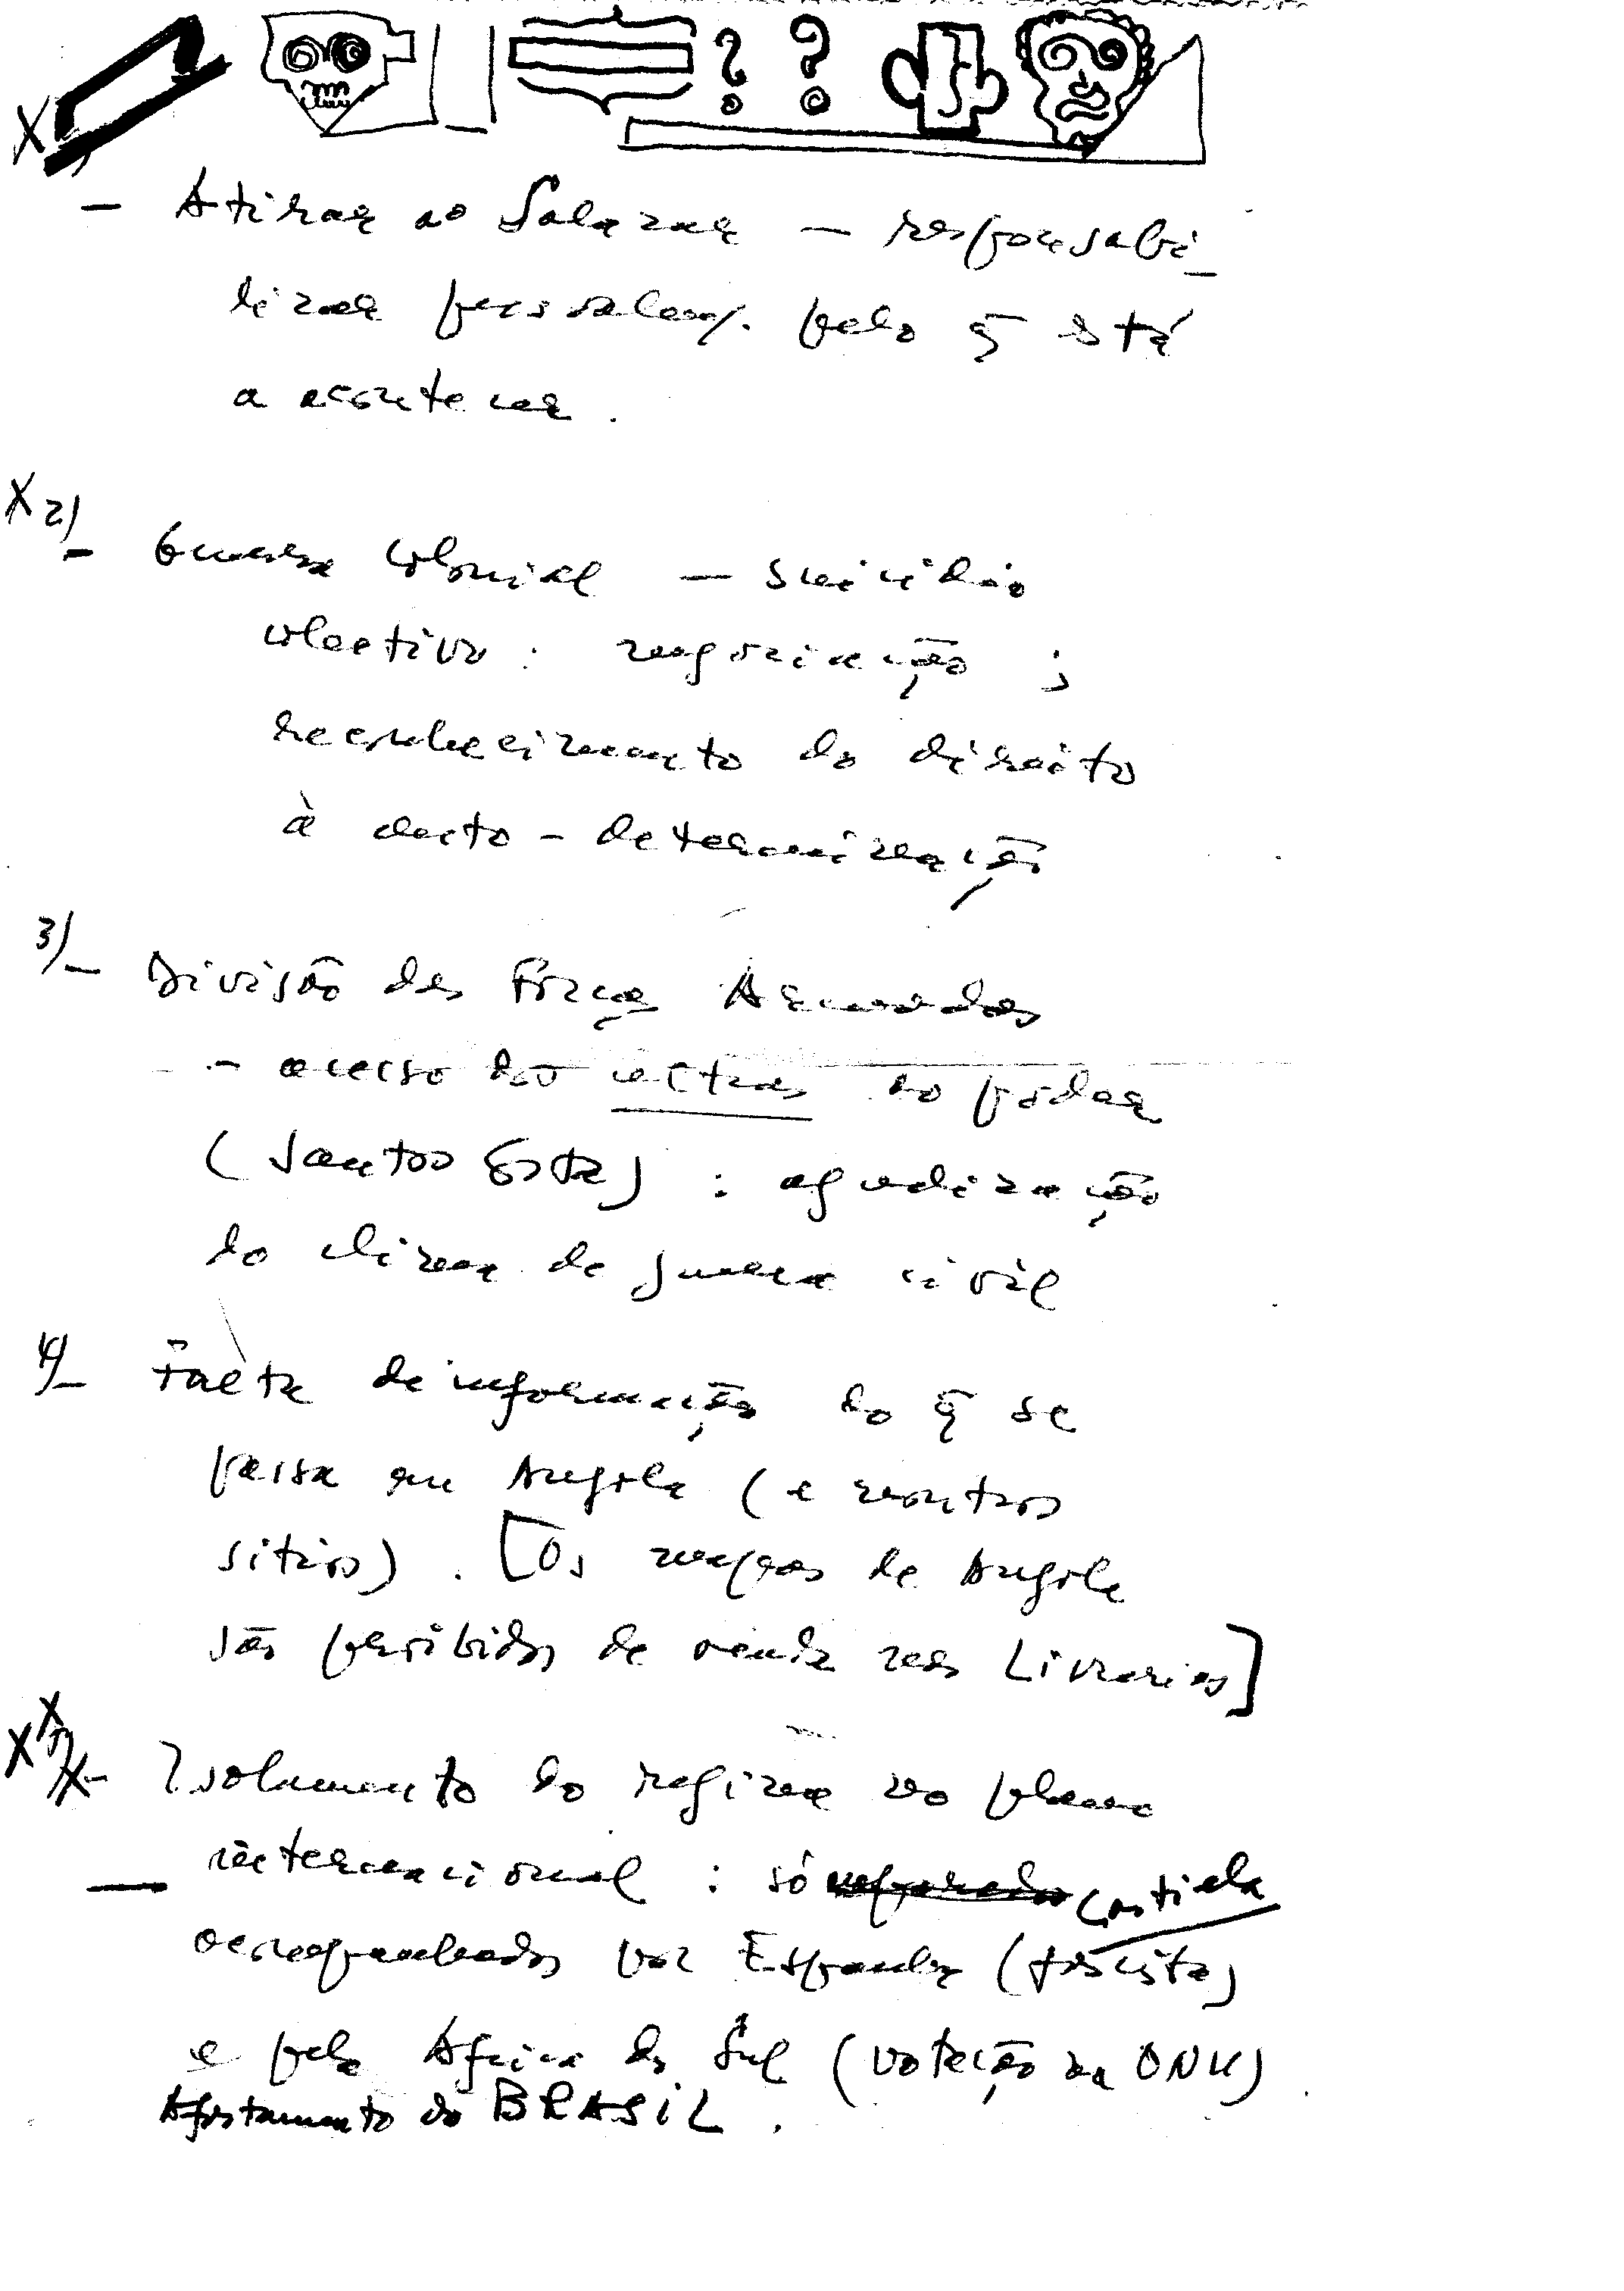 ? ?
X
– Atirar ao Salazar – responsabi-
lizar pessoalm. pelo q̄ está
a acontecer.
X 2)
– Guerra Colonial – suicídio
colectivo : negociação ;
reconhecimento do direito
à auto-determinação
3)– Divisão das Forças Armadas
– acesso dos ultras ao poder
(Santos Costa) : agudização
do clima de guerra civil
4)– Falta de informação do q̄ se
passa em Angola (e noutros
sítios). [Os mapas de Angola
são proibidos de venda nas Livrarias]
XX 5)
X– Isolamento do regime no plano
– internacional : só Castiela
acompanhados por Espanha (fascista)
e pela África do Sul (votação na ONU).
Afastamento do BRASIL.